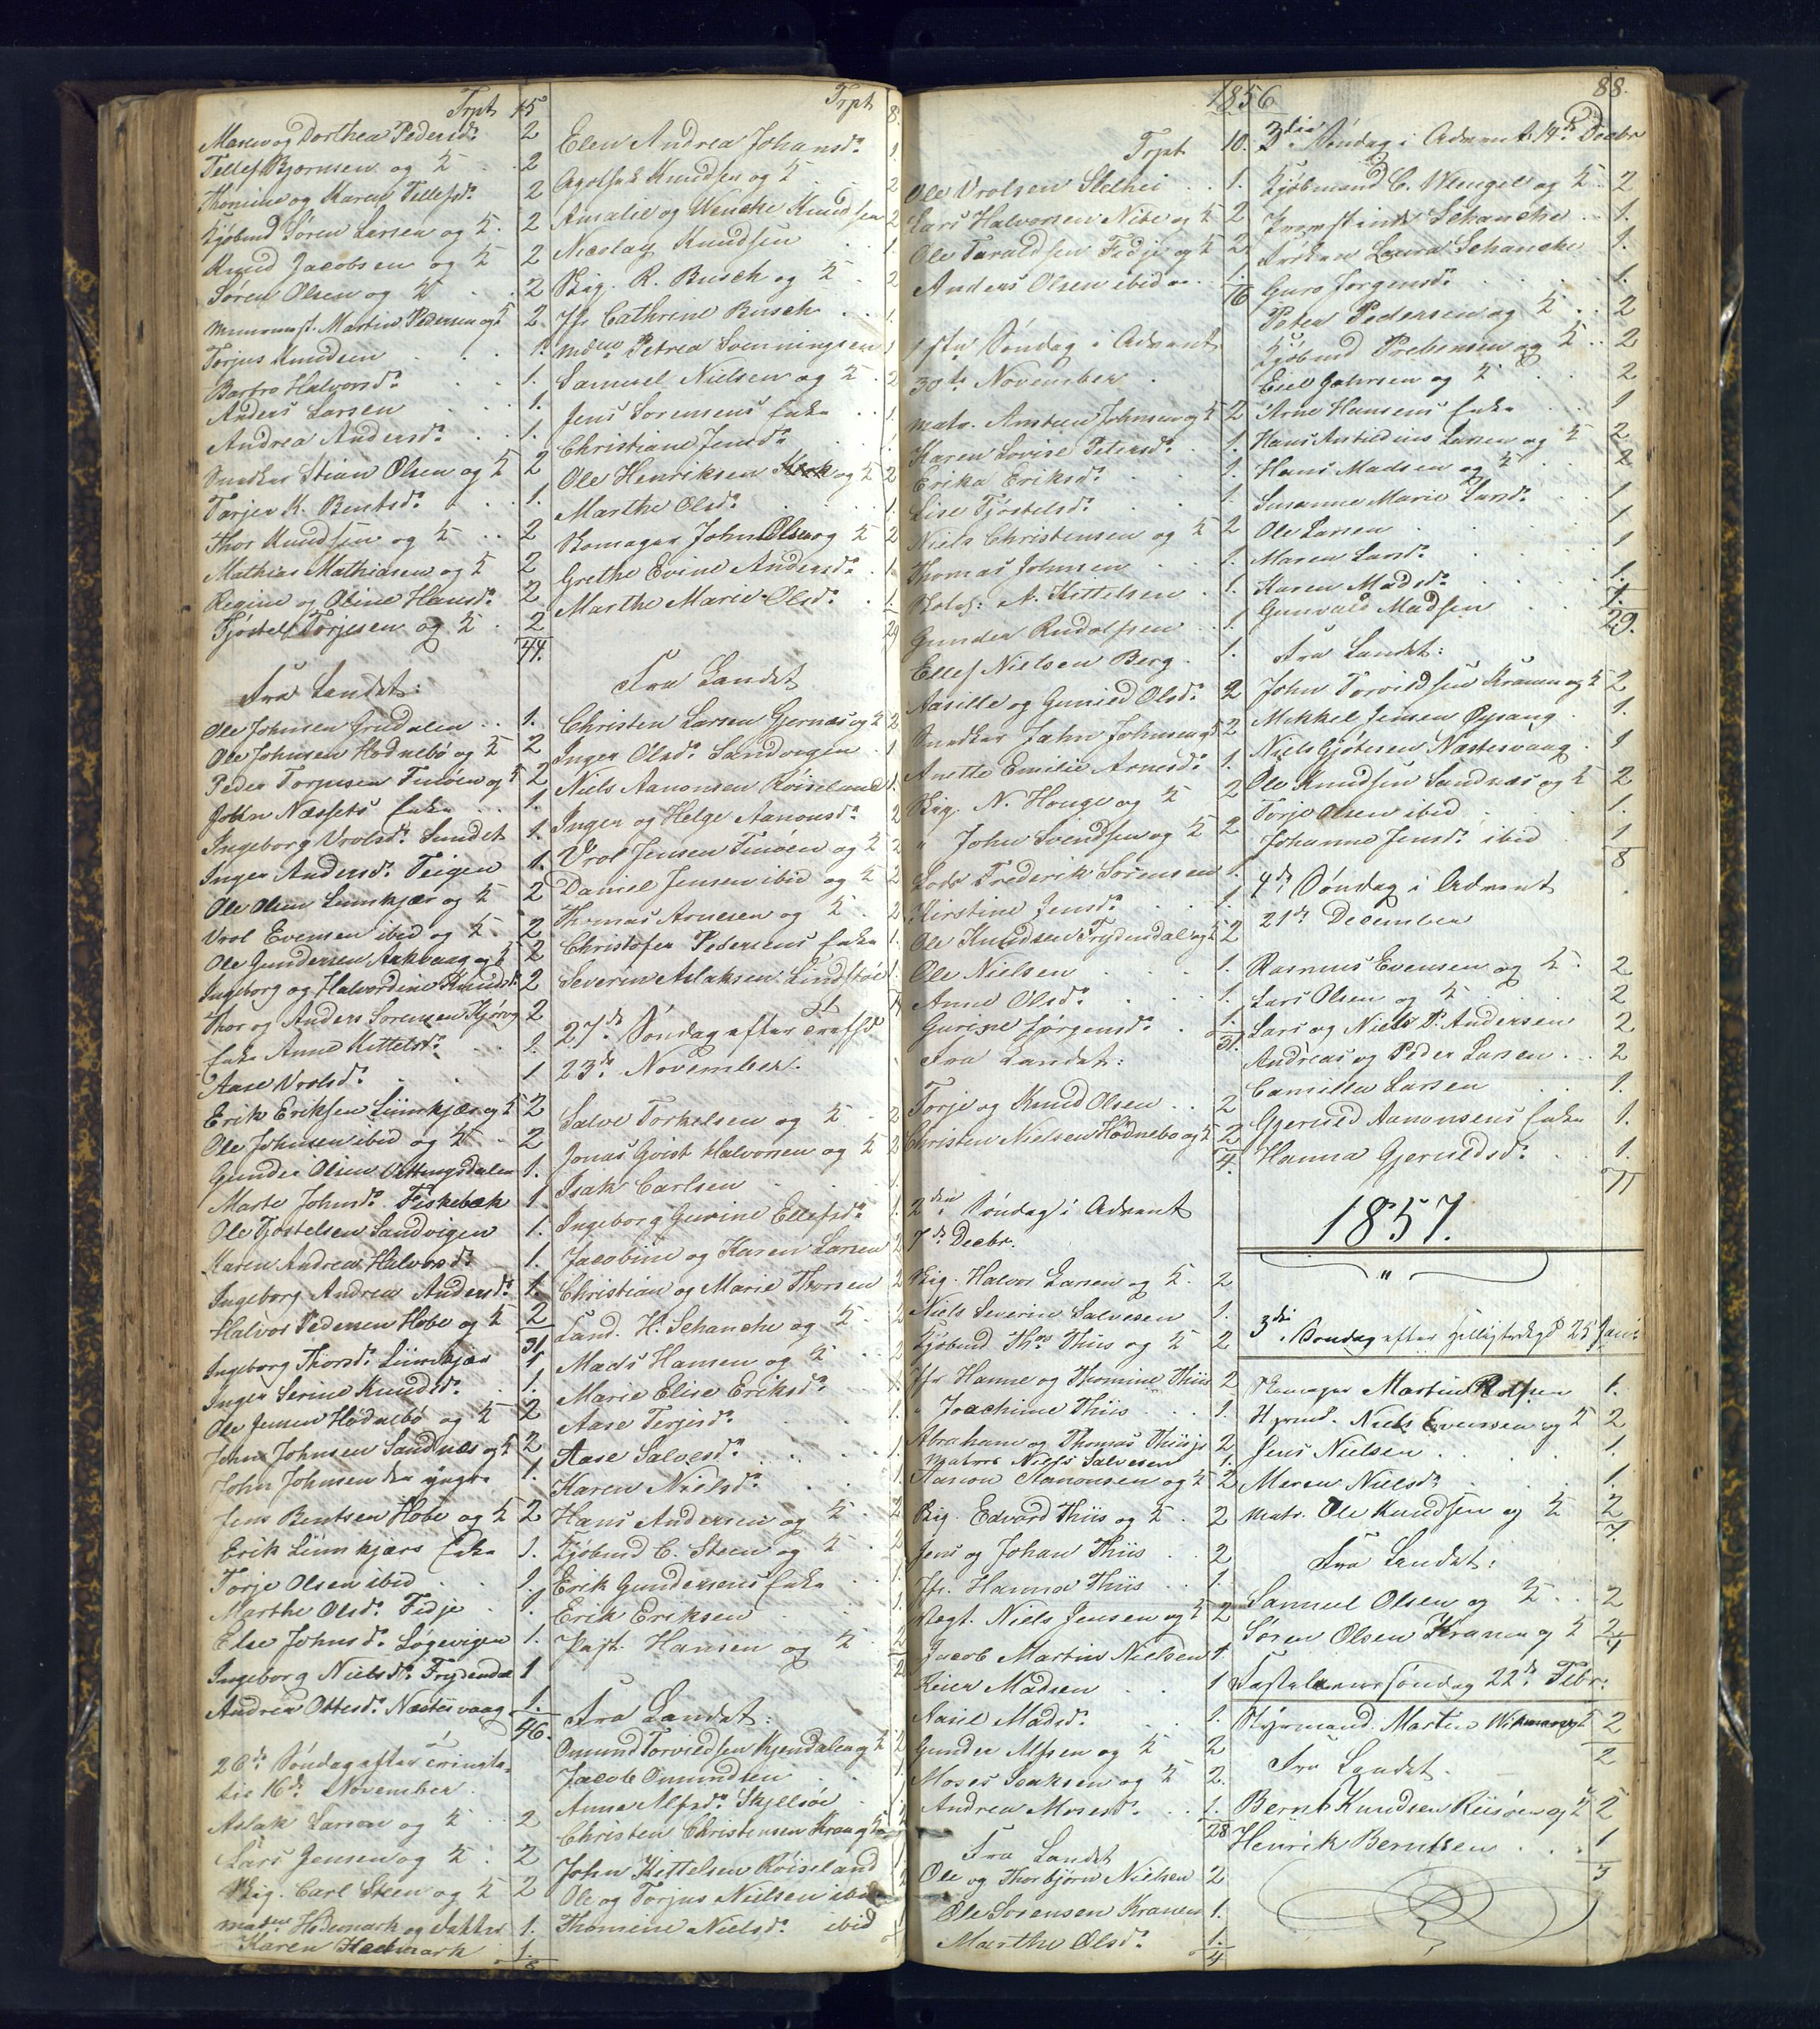 Trpt 15
Maren og Dorthea Pedersd. 2
Tellef Bjornsen og K 2
Thomine og Maren Tellefsd. 2
Kjöbmd Sören Larsen og K. 2
Knud Jacobsen og K 2
Sören Olsen og K 2
Martin Pedersen og K 2
Torjus Knudsen 1.
Barbro Halvorsd. 1.
Anders Larsen 1.
Andrea Andersd. 1.
Snedker Stian Olsen og K 2
Tarjer K. Bentsd. 1.
Thor Knudsen og K 2
Mathias Mathiasen og K 2
Regine og Oline Hansd. 2
Tjöstel Torjesen og K 2
44.
Fra Landet:
Ole Johnsen 1.
Ole Johnsen Hödnebö og K 2
Peder Torjusen og K 2
John Næssets Enke 1.
Ingeborg Vrolsd. Sundet 1.
Inger Andersd. Teigen 1.
Ole Olsen Liimkjær og K 2
Vrol Evensen ibid og K 2
Ole Gundersen Aakvaag og K 2
Ingeborg og Halvordine Knudsd. 2
Thor og Anders Sorensen 2
Enke Anne Kittelsd. 1.
Aase Vrolsd. 1
Erik Eriksen Liimkjær og K 2
Ole Johnsen ibid og K 2
Gunder Olsen 1.
Marte Johnsd. Fiskebæk 1
Ole Tjostelsen Sandvigen 1.
Karen Andrea Halvorsd. 1.
Ingeborg Andrea Andersd. 1.
Halvor Pedersen Hobe og K 2
31
Ingeborg Thorsd. Liimkjær 1
Inger Serine Knudsd. 1.
Ole Jensen Hödnebö og K 2
John Johnsen Sandnæs og K 2
John Johnsen den yngre 1.
Jens Bentsen Hobe og K 2
Erik Liimkjærs Enke 1.
Torje Olsen ibid 1.
Marthe Olsd. Fidje 1.
Else Johnsd. Lögevigen 1.
Ingeborg Nielsd. Frydendal 1
Andrea Ottesd. Næstesvaag 1.
46.
26de Söndag efter Trinita-
tis 16de November.
Aslak Larsen og K 2
Lars Jensen og K 2
Skig. Carl Steen og K 2
Hedemark og Datter 1.
Karen Hedemark 1.
8
Trpt 8.
Elen Andrea Johansd. 1.
Knudsen og K 2
Amalie og Wencke Knudsen 2
Nicolay Knudsen 1
Skig. R. Busch og K 2
Jfr Cathrine Busch 1.
Petrea Svenningsen 1
Samuel Nielsen og K 2
Jens Sorensens Enke 1.
Christiane Jensd. 1
Ole Henriksen og K 2
Marthe Olsd. 1
Skomager John Olsen og K 2
Grethe Evine Andersd. 1
Marthe Marie Olsd. 1.
29
Fra Landet
Christen Larsen Gjernæs og K 2
Inger Olsd. Sandvigen 1
Niels Aanonsen Röiseland 1
Inger og Helge Aanonsd. 2
Vrol Jensen og K 2
Daniel Jensen ibid og K 2
Thomas Arnesen og K 2
Christofer Pedersens Enke 1.
Severin Aslaksen Lindstöl 1.
27de Söndag efter Trefd
23de November.
Salve Torkelsen og K 2
Jonas Qvist Halvorsen og K 2
Isak Carlsen 1
Ingeborg Gurine Ellefsd. 1
Jacobine og Karen Larsen 2
Christian og Marie Thorsen 2
Cand. H. Schanche og K 2
Mads Hansen og K 2
Marie Elise Eriksd. 1.
Aase Terjesd. 1.
Aase Salvesd. 1
Karen Nielsd. 1
Hans Andersen og K 2
Kjöbmd C. Steen og K 2
Erik Gundersens Enke 1
Erik Eriksen 1
Hansen og K 2
Fra Landet:
Omund Torvildsen og K 2
Jacob Omundsen 1
Anne Alfsd. Skjelsöe 1
Christen Christensen Kranen og K
John Kittelsen Röiseland 1
Ole og Torjus Nielsen ibid
Thomine Nielsd. ibid
1856
Trpt 10.
Ole Vrolsen Stelhei 1.
Lars Halvorsen Nibe og K 2
Ole Taraldsen Fidje og K 2
Anders Olsen ibid 1.
16
1ste Söndag i Advent
30te November
Matr. Amsteen Johnsen og K 2
Karen Lovise Petersd. 1.
Erika Eriksd. 1.
Lise Tjöstelsd. 1
Niels Christensen og K 2
Thomas Johnsen 1.
A. Kittelsen 1.
Gunder Rudolfsen 1
Ellef Nielsen Berg 1.
Aasille og Gunild Olsd. 2
Snedker Jahn Johnsen og K 2
Anette Emilie Arnesd. 1.
Skig. N. Houge og K 2
" John Svendsen og K 2
Lods Frederik Sörensen 1.
Kirstine Jensd. 1
Ole Knudsen Frydendal og K 2
Ole Nielsen 1.
Anne Olsd. 1.
Gurine Jörgensd. 1.
31.
Fra Landet:
Torje og Knud Olsen 2
Christen Nielsen Hödnebo og K 2
4.
2den Söndag i Advent
7de Decbr.
Skig. Halvor Larsen og K. 2
Niels Severin Salvesen 1.
Kjöbmd Ths Thiis og K 2
Jfr Hanne og Thomine Thiis 2
" Joachime Thiis 1.
Abraham og Thomas Thiis 2
Matros Niels Salvesen 1.
Aanon Aanonsen og K 2
Skig. Edvard Thiis og K. 2
Jens og Johan Thiis 2
Jfr. Hanna Thiis 1.
Niels Jensen og K 2
Jacob Martin Nielsen 1
Reier Madsen 1
Aasil Madsd. 1.
Gunder Alfsen og K 2
Moses Isaksen og K 2.
Andrea Mosesd. 1.
28
Fra Landet
Ole og Thorbjörn Nielsen 2
Ole Sorensen Kranen 1.
Marthe Olsd. 1.
4
88.
3die Söndag i Advent 14de Decbr
Kjöbmand C. Wengel og K. 2
Schanche 1.
Fröken Laura Schanche 1.
Guro Jorgensd. 1.
Peter Pedersen og K 2
Kjöbmd Prebensen og K 2
Eiel Jahnsen og K 2
Arne Hansens Enke 1
Hans Larsen og K 2
Hans Madsen og K 2
Susanne Marie Larsd. 1
Ole Larsen 1
Maren Larsd. 1
Karen Madsd. 1.
Gunvald Madsen 1.
29.
Fra Landet:
John Torvildsen Kranen og K 2
Mikkel Jensen Öysang 1.
Niels Gjötesen Næstesvaag 1
Ole Knudsen Sandnæs og K 2
Torje Olsen ibid 1.
Johanne Jensd. ibid 1
8
4de Söndag i Advent
21de December
Rasmus Evensen og K. 2
Lars Olsen og K 2
Lars og Niels P. Andersen 2
Andreas og Peder Larsen 2
Camilla Larsen 1.
Gjeruld Aanonsens Enke 1.
Hanna Gjeruldsd. 1.
11
1857.
"
3die Söndag efter Helligtrekgd 25 Janr.
Skomager Martin Rolfsen 1.
Styrmd. Niels Evensen og K 2
Jens Nielsen 1.
Maren Nielsd. 1.
Matr. Ole Knudsen og K 2
7.
Fra Landet:
Samuel Olsen og K 2
Sören Olsen Kranen og K 2
4
Fastelavnssöndag 22de Febr.
Styrmand Martin og K 2
2
Fra Landet.
Bernt Knudsen Riisöen og K 2
Henrik Berntsen 1
3